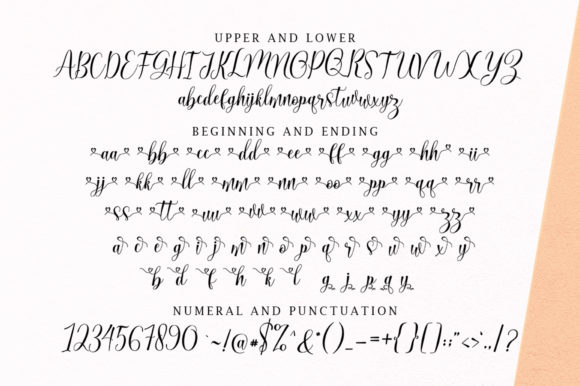 UPPER AND LOWER
ABCDEFGHIJKLMNOPQRSTUVWXYZ
abcdefghijklmnopqrstuvwxyz
BEGINNING AND ENDING
aa bb cc dd ee ff gg hh ii
jj kk ll mm nn oo pp qq rr
ss tt uu vv ww xx yy zz
a c e g i j m n o p q r s u v w x y
b d f h k l g j p q y
NUMERAL AND PUNCTUATION
1234567890 `~!@#$%^&*()_-=+{}[]:;"<>'.,/?